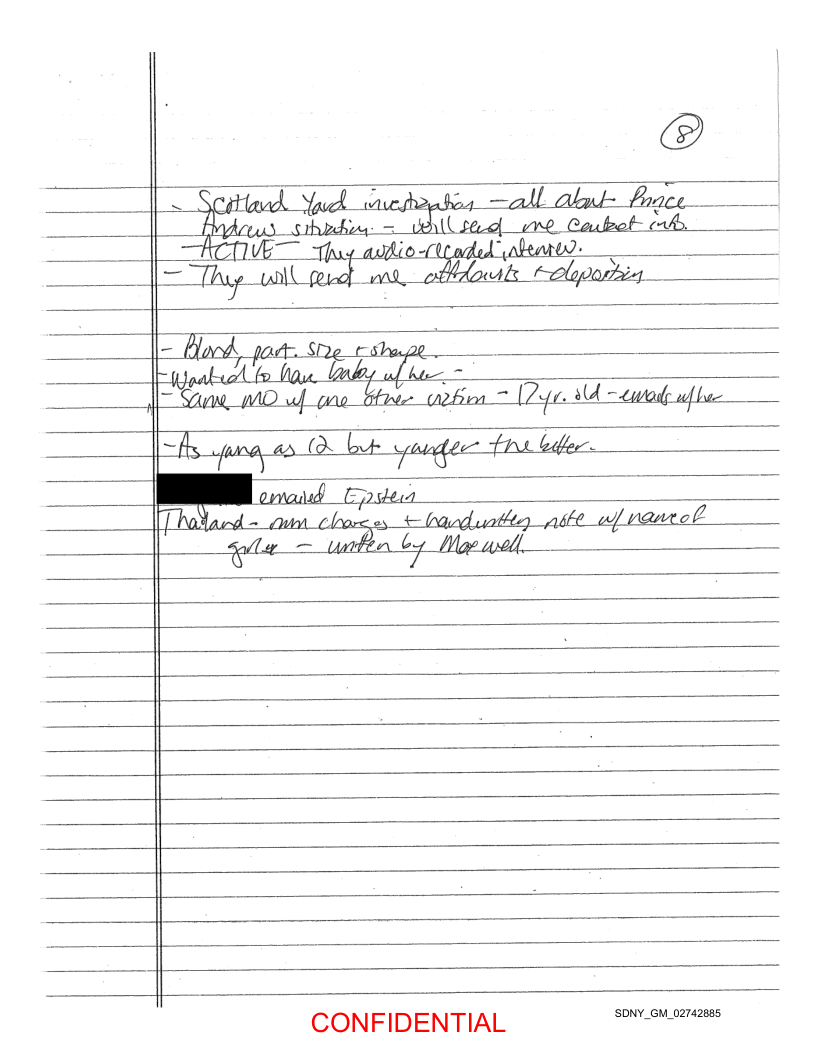 8
- Scotland Yard investigation - all about Prince
Andrew situation - will send me contact info.
- ACTIVE - They audio-recorded interview.
- They will send me affidavits + deposition
- Blond, part. size + shape.
- Wanted to have baby w/ her -
- Same MO w/ one other victim - 17 yr. old - emails w/ her
- As young as 12 but younger the better.
emailed Epstein
Thailand - charges + handwritten note w/ name of
- written by Maxwell.
CONFIDENTIAL
SDNY_GM_02742885